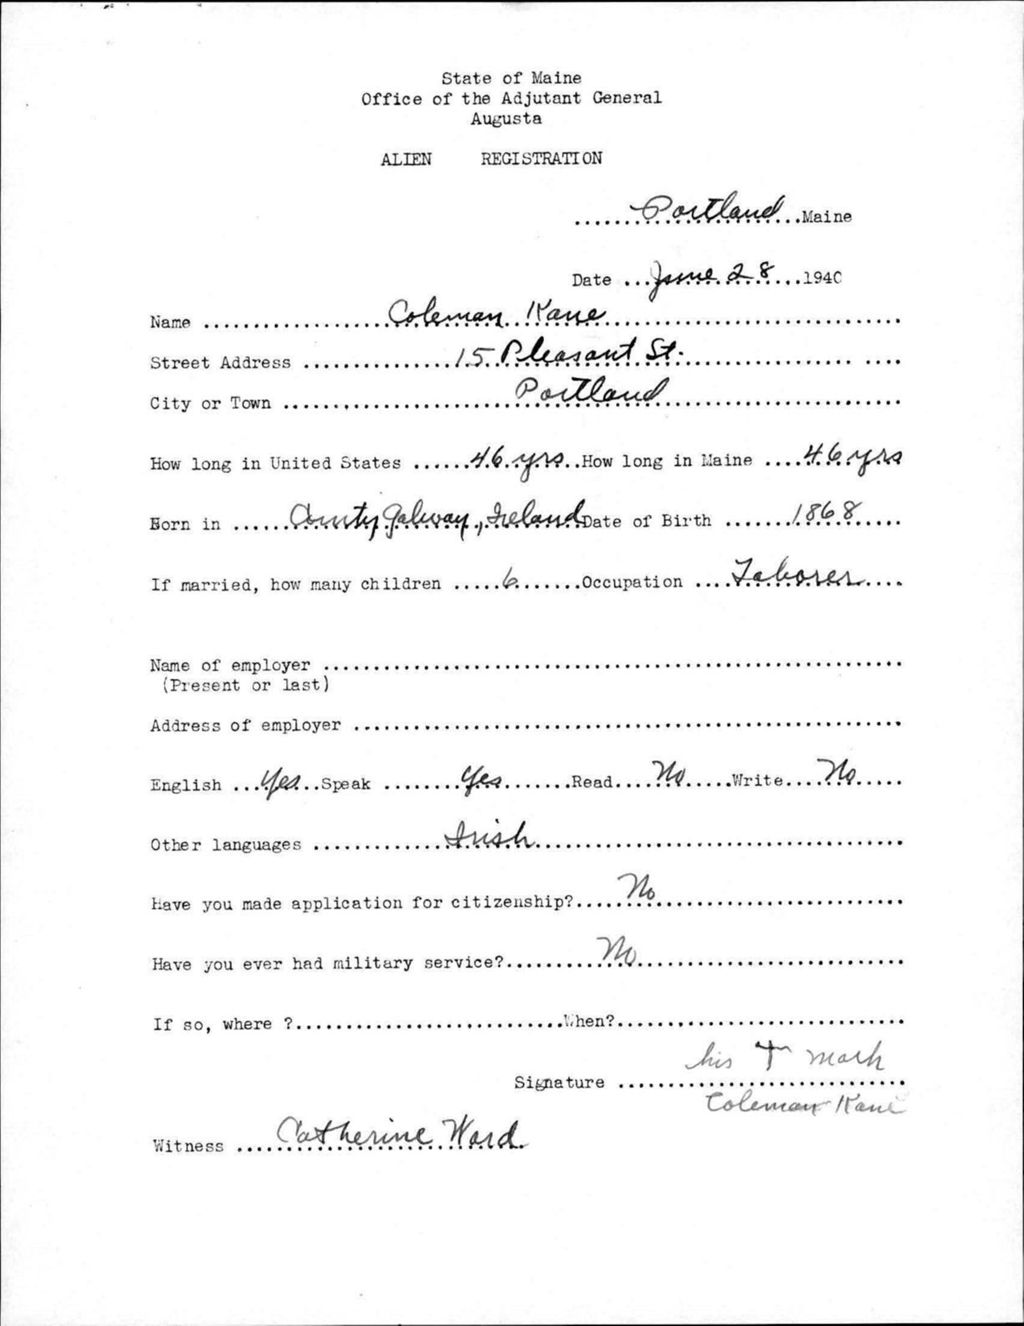 State of Maine
Office of the Adjutant General
Augusta
ALIEN REGISTRATION
......Portland...Maine
Date ...June 28...1940
Name ...................Coleman Kane..............................
Street Address ...............15 Pleasant St................. ....
City or Town .......................Portland........................
How long in United States ......46 yrs..How long in Maine ....46 yrs
Born in ......County Galway, Ireland Date of Birth .......1868.....
If married, how many children .....6.......Occupation ....Laborer....
Name of employer ..........................................................
(Present or last)
Address of employer .......................................................
English ...Yes..Speak ........Yes.......Read....No.....Write....No.....
Other languages .............Irish.....................................
Have you made application for citizenship?.....No.........................
Have you ever had military service?.........No...........................
If so, where ?...........................When?.............................
his + mark
Signature .............................
Coleman Kane
Witness ....Catherine Ward.